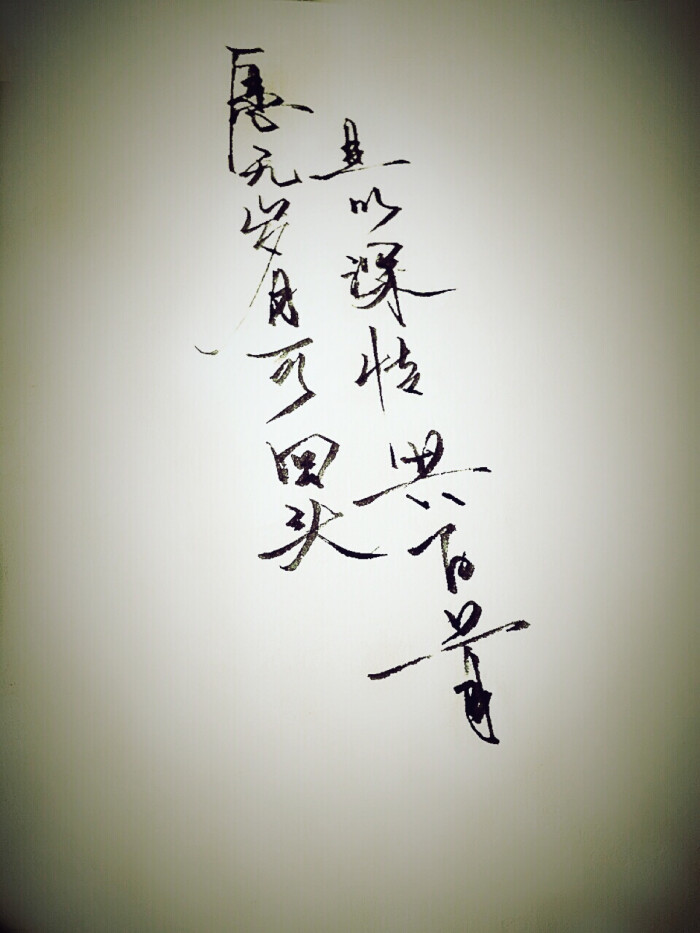 愿无岁月可回头
且以深情共白首